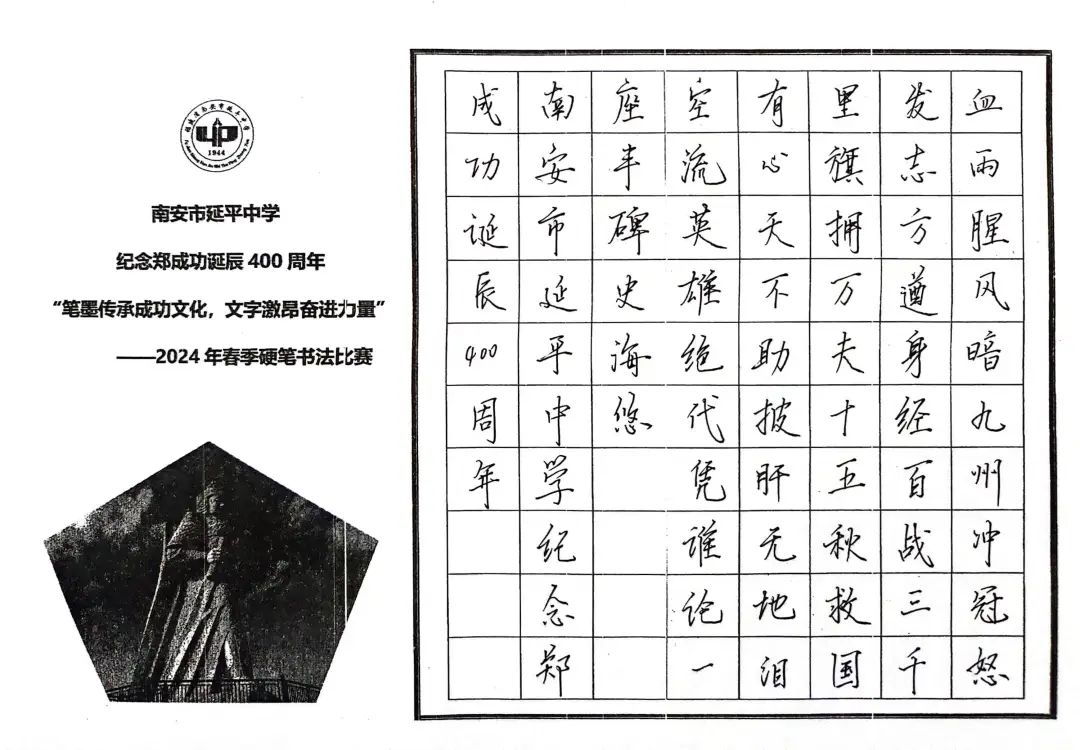 1944
南安市延平中学
纪念郑成功诞辰 400 周年
“笔墨传承成功文化，文字激昂奋进力量”
——2024 年春季硬笔书法比赛
血雨腥风暗九州冲冠怒
发志方遒身经百战三千
里旗拥万夫十五秋救国
有心天不助披肝无地泪
空流英雄绝代凭谁论一
座丰碑史海悠
南安市延平中学纪念郑
成功诞辰400周年